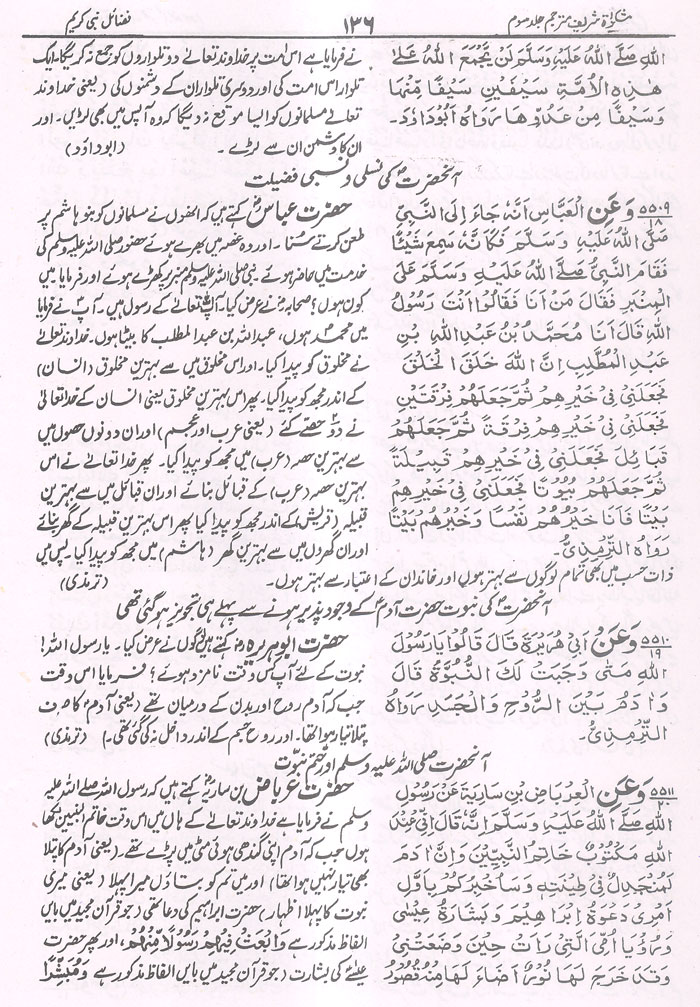 مشکوٰۃ شریف مترجم جلد سوم
۱۳۶
فضائل نبی کریم
اللهِ صَلَّى اللهُ عَلَيْهِ وَسَلَّمَ لَنْ يَّجْمَعَ اللهُ عَلٰى
هٰذِهِ الْاُمَّةِ سَيْفَيْنِ سَيْفًا مِّنْهَا
وَسَيْفًا مِّنْ عَدُوِّهَا رَوَاهُ اَبُوْدَاؤدَ۔
نے فرمایا ہے اس امت پر خداوند تعالےٰ دو تلواروں کو جمع نہ کریگا۔ ایک
تلوار اس امت کی اور دوسری تلوار ان کے دشمنوں کی (یعنی خداوند
تعالےٰ مسلمانوں کو ایسا موقع نہ دیگا کہ وہ آپس میں بھی لڑیں۔ اور
ان کا دشمن ان سے لڑے۔ (ابوداؤد)
آنحضرتؐ کی نسلی و نسبی فضیلت
۵۵۰۹
۱۸
وَعَنِ الْعَبَّاسِ اَنَّهٗ جَاءَ اِلَى النَّبِيِّ
صَلَّى اللهُ عَلَيْهِ وَسَلَّمَ فَكَاَنَّهٗ سَمِعَ شَيْئًا
فَقَامَ النَّبِيُّ صَلَّى اللهُ عَلَيْهِ وَسَلَّمَ عَلَى
الْمِنْبَرِ فَقَالَ مَنْ اَنَا فَقَالُوْا اَنْتَ رَسُوْلُ
اللهِ قَالَ اَنَا مُحَمَّدُ بْنُ عَبْدِ اللهِ بْنِ
عَبْدِ الْمُطَّلِبِ اِنَّ اللهَ خَلَقَ الْخَلْقَ
فَجَعَلَنِيْ فِيْ خَيْرِهِمْ ثُمَّ جَعَلَهُمْ فِرْقَتَيْنِ
فَجَعَلَنِيْ فِيْ خَيْرِهِمْ فِرْقَةً ثُمَّ جَعَلَهُمْ
قَبَائِلَ فَجَعَلَنِيْ فِيْ خَيْرِهِمْ قَبِيْلَةً
ثُمَّ جَعَلَهُمْ بُيُوْتًا فَجَعَلَنِيْ فِيْ خَيْرِهِمْ
بَيْتًا فَاَنَا خَيْرُهُمْ نَفْسًا وَخَيْرُهُمْ بَيْتًا
رَوَاهُ التِّرْمِذِيُّ۔
حضرت عباسؓ کہتے ہیں کہ انھوں نے مسلمانوں کو بنو ہاشم پر
طعن کرتے سنا۔ اور وہ غصہ میں بھرے ہوئے حضور صلی اللہ علیہ وسلم کی
خدمت میں حاضر ہوئے۔ نبی صلی اللہ علیہ وسلم منبر پر کھڑے ہوئے اور فرمایا۔ میں
کون ہوں؟ صحابہؓ نے عرض کیا۔ آپ اللہ تعالےٰ کے رسول ہیں۔ آپؐ نے فرمایا
میں محمدؐ ہوں، عبداللہ بن عبدالمطلب کا بیٹا ہوں۔ خداوند تعالےٰ
نے مخلوق کو پیدا کیا۔ اور اس مخلوق میں سے بہترین مخلوق (انسان)
کے اندر مجھ کو پیدا کیا۔ پھر اس بہترین مخلوق یعنی انسان کے خدا تعالیٰ
نے دو حصے کئے (یعنی عرب اور عجم) اور ان دونوں حصوں میں
سے بہترین حصہ (عرب) میں مجھ کو پیدا کیا۔ پھر خدا تعالےٰ نے اس
بہترین حصہ (عرب) کے قبائل بنائے اور ان قبائل میں سے بہترین
قبیلہ (قریش) کے اندر مجھ کو پیدا کیا پھر اس بہترین قبیلہ کے گھر بنائے
اور ان گھروں میں سے بہترین گھر (ہاشم) میں مجھ کو پیدا کیا۔ پس میں
ذات حسب میں بھی تمام لوگوں سے بہتر ہوں اور خاندان کے اعتبار سے بہتر ہوں۔ (ترمذی)
آنحضرتؐ کی نبوت حضرت آدمؑ کے وجود پذیر ہونے سے پہلے ہی تجویز ہو گئی تھی
۵۵۱۰
۱۹
وَعَنْ اَبِيْ هُرَيْرَةَ قَالَ قَالُوْا يَا رَسُوْلَ
اللهِ مَتٰى وَجَبَتْ لَكَ النُّبُوَّةُ قَالَ
وَاٰدَمُ بَيْنَ الرُّوْحِ وَالْجَسَدِ رَوَاهُ
التِّرْمِذِيُّ۔
حضرت ابوہریرہؓ کہتے ہیں لوگوں نے عرض کیا۔ یا رسول اللہ!
نبوت کے لئے آپ کس وقت نامزد ہوئے؟ فرمایا اس وقت
جب کہ آدم روح اور بدن کے درمیان تھے (یعنی آدمؑ کا صرف
پتلا تیار ہوا تھا۔ اور روح جسم کے اندر داخل نہ کی گئی تھی۔) (ترمذی)
آنحضرت صلی اللہ علیہ وسلم اور ختم نبوت
۵۵۱۱
۲۰
وَعَنِ الْعِرْبَاضِ بْنِ سَارِيَةَ عَنْ رَسُوْلِ
اللهِ صَلَّى اللهُ عَلَيْهِ وَسَلَّمَ اَنَّهٗ قَالَ اِنِّيْ عِنْدَ
اللهِ مَكْتُوْبٌ خَاتَمُ النَّبِيِّيْنَ وَاِنَّ اٰدَمَ
لَمُنْجَدِلٌ فِيْ طِيْنَتِهٖ وَسَاُخْبِرُكُمْ بِاَوَّلِ
اَمْرِيْ دَعْوَةُ اِبْرَاهِيْمَ وَبَشَارَةُ عِيْسٰى
وَرُؤْيَا اُمِّيَ الَّتِيْ رَاَتْ حِيْنَ وَضَعَتْنِيْ
وَقَدْ خَرَجَ لَهَا نُوْرٌ اَضَاءَ لَهَا مِنْهُ قُصُوْرُ
حضرت عرباضؓ بن ساریہؓ کہتے ہیں کہ رسول اللہ صلے اللہ علیہ
وسلم نے فرمایا ہے خداوند تعالےٰ کے ہاں میں اس وقت خاتم النبیین لکھا
ہوں جب کہ آدم اپنی گندھی ہوئی مٹی میں پڑے تھے۔ (یعنی آدم کا پتلا
بھی تیار نہیں ہوا تھا) اور میں تم کو بتاؤں میرا پہلا (یعنی میری
نبوت کا پہلا اظہار) حضرت ابراہیم کی دعا تھی (جو قرآن مجید میں بایں
الفاظ مذکور ہے وَابْعَثْ فِيْهِمْ رَسُوْلًا مِّنْهُمْ، اور پھر حضرت
عیسےٰ کی بشارت (جو قرآن مجید میں بایں الفاظ مذکور ہے وَمُبَشِّرًا